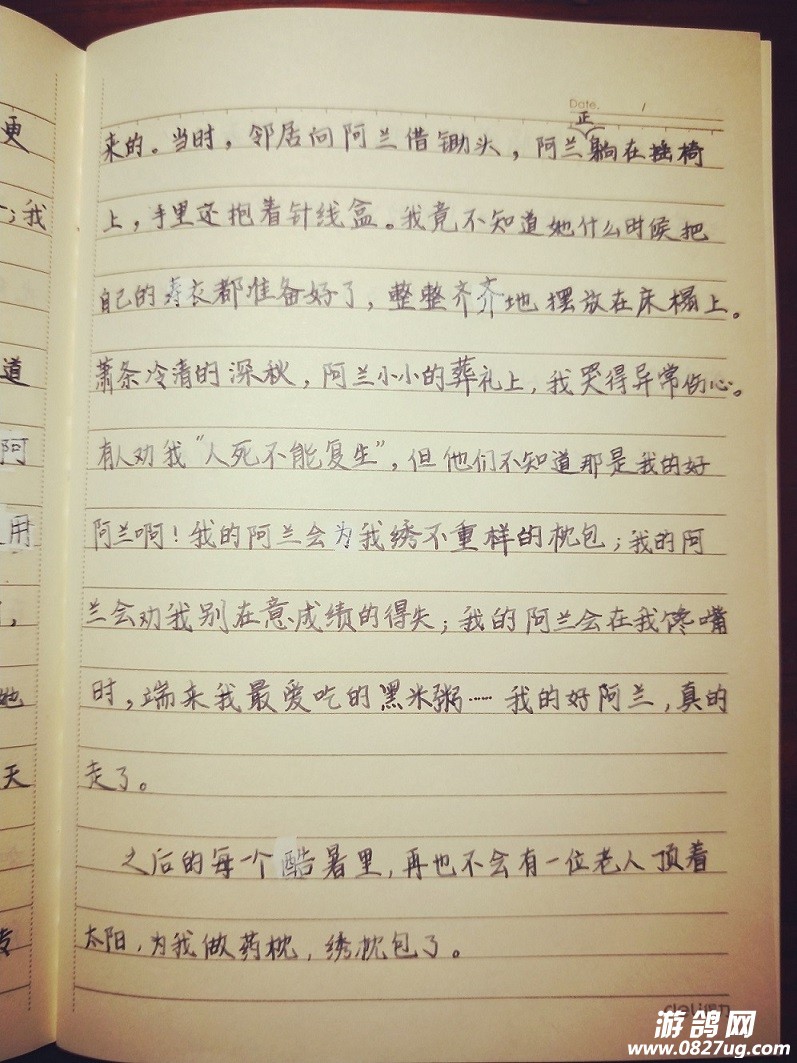 更
；我
道
阿
用
，
她
天
Date. /
正
来的。当时，邻居问阿兰借锄头，阿兰躺在摇椅
上，手里还抱着针线盒。我竟不知道她什么时候把
自己的寿衣都准备好了，整整齐齐地摆放在床榻上。
萧条冷清的深秋，阿兰小小的葬礼上，我哭得异常伤心。
有人劝我“人死不能复生”，但他们不知道那是我的好
阿兰啊！我的阿兰会为我绣不重样的枕包；我的阿
兰会劝我别在意成绩的得失；我的阿兰会在我馋嘴
时，端来我最爱吃的黑米粥……我的好阿兰，真的
走了。
之后的每一个酷暑里，再也不会有一位老人顶着
太阳，为我做药枕，绣枕包了。
deli得力
游鸽网
www.0827ug.com